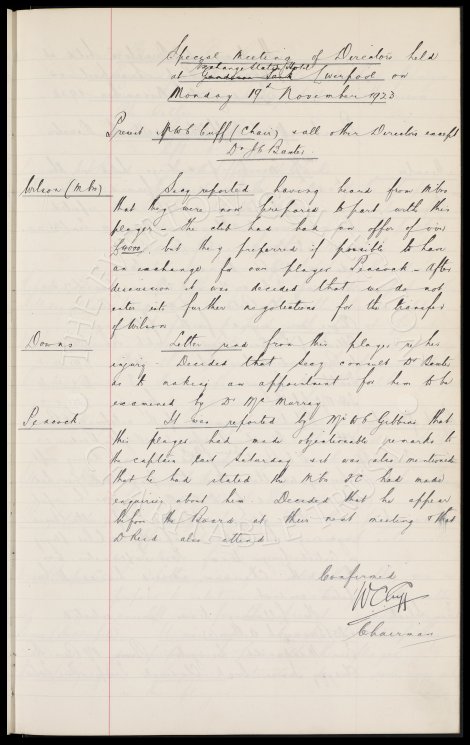 Special Meeting of Directors held
Exchange Station Hotel
at Goodison Park Liverpool on
Monday 19th November 1923
Present Mr W C Cuff (Chair) & all other Directors except
Dr J C Baxter.
Wilson (M'bro)
Secy reported having heard from M'bro
that they were now prepared to part with this
player - the club had had an offer of over
£4000, but they preferred if possible to have
an exchange for our player Peacock - After
discussion it was decided that we do not
enter into further negotiations for the transfer
of Wilson
Downs
Letter read from this player re his
injury - Decided that Secy consult Dr Baxter
as to making an appointment for him to be
examined by Dr Mc Murray
Peacock
It was reported by Mr W C Gibbins that
this player had made objectionable remarks to
the captain last Saturday & it was also mentioned
that he had stated the M'bro F.C had made
enquiries about him. Decided that he appear
before the Board at their next meeting & that
D Reid also attend.
Confirmed
W C Cuff
Chairman